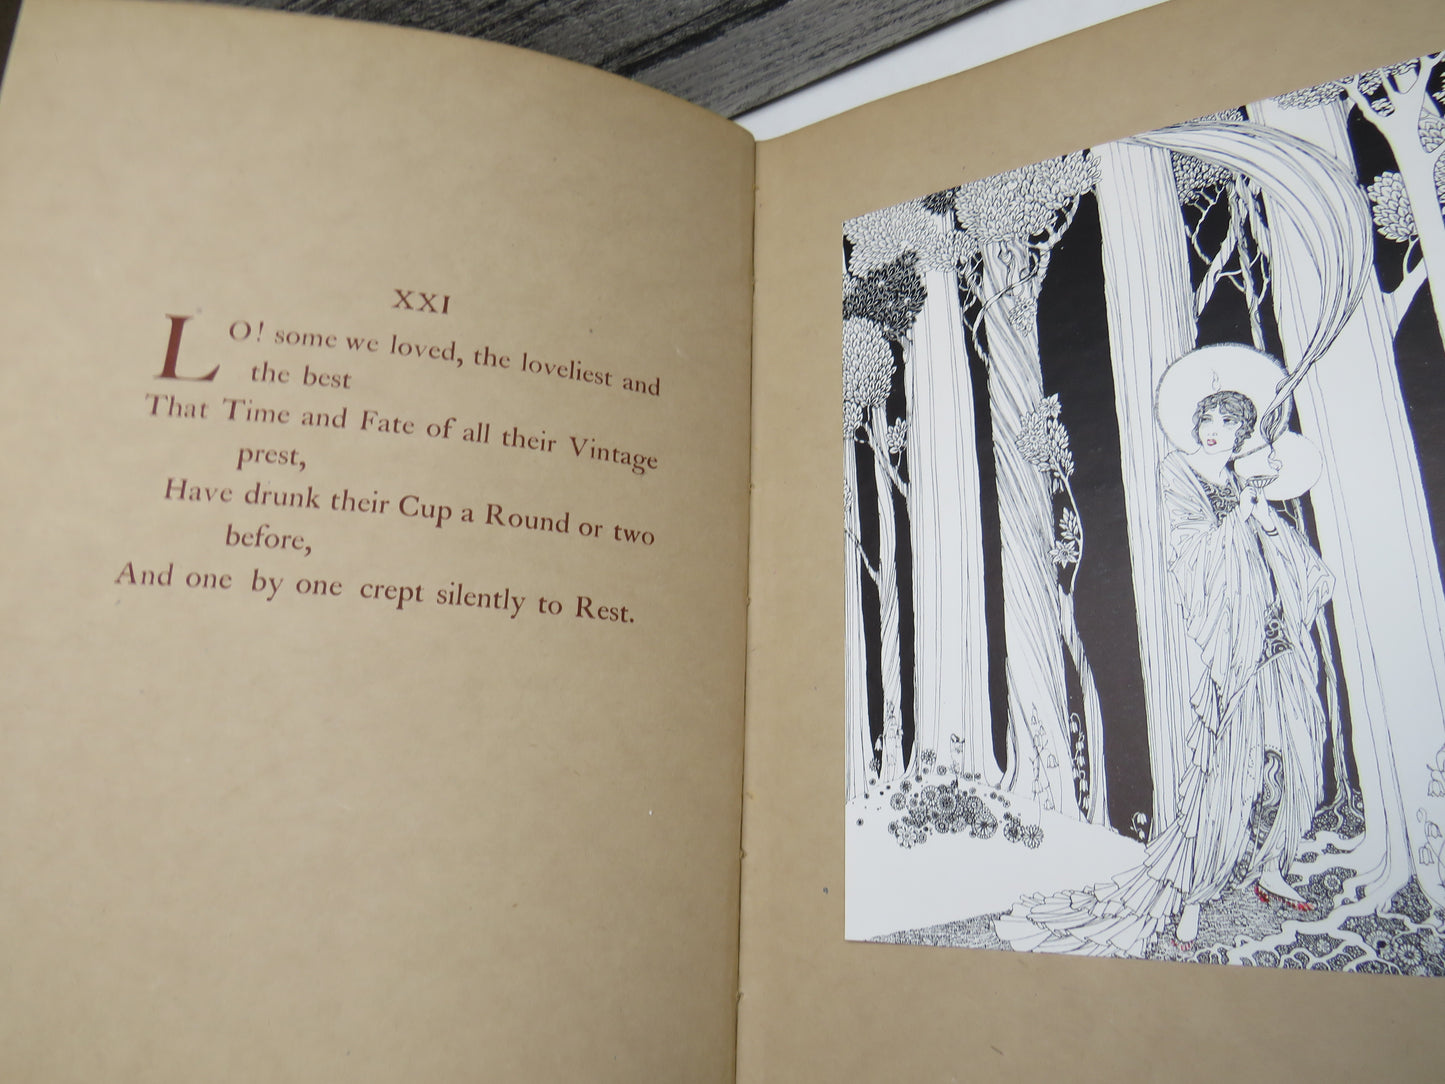 XXI
LO! some we loved, the loveliest and
the best
That Time and Fate of all their Vintage
prest,
Have drunk their Cup a Round or two
before,
And one by one crept silently to Rest.